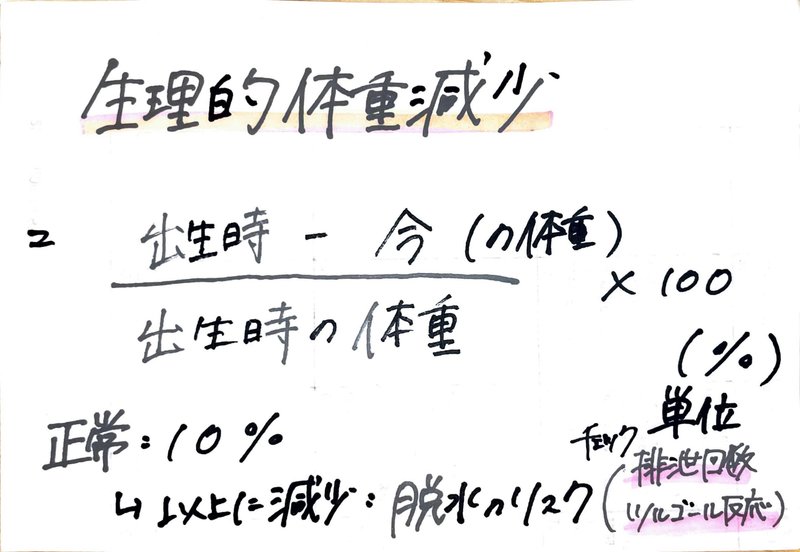 生理的体重減少
= 出生時 - 今(の体重)
出生時の体重
× 100
(%)
単位
正常:10%
↳ 以上に減少:脱水のリスク
チェック
(排泄回数
ツルゴール反応)